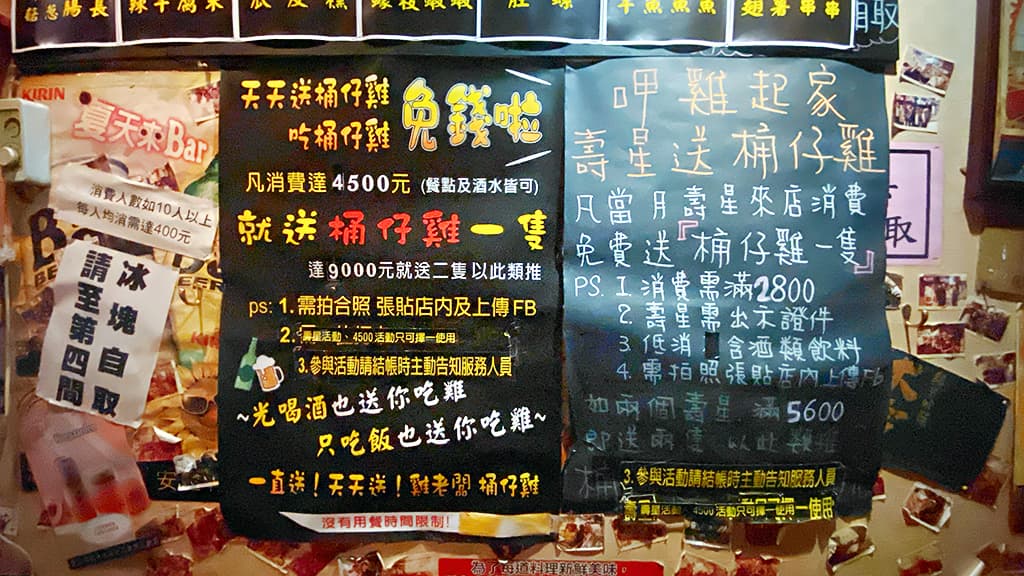 腸長
自取
KIRIN
夏天來Bar
消費人數如10人以上
每人均消需達400元
冰塊自取
請至第四間
天天送桶仔雞
吃桶仔雞
免錢啦
凡消費達4500元 (餐點及酒水皆可)
就送桶仔雞一隻
達9000元就送二隻 以此類推
ps: 1.需拍合照 張貼店內及上傳FB
2.壽星活動、4500活動只可擇一使用
3.參與活動請結帳時主動告知服務人員
~光喝酒也送你吃雞
只吃飯也送你吃雞~
一直送!天天送!雞老闆 桶仔雞
沒有用餐時間限制!
呷雞起家
壽星送桶仔雞
凡當月壽星來店消費
免費送『桶仔雞一隻』
PS. 1 消費需滿2800
2. 壽星需出示證件
3. 低消 含酒類飲料
4. 需拍照張貼店內上傳Fb
如兩個壽星 滿5600
即送兩隻 以此類推
桶
3.參與活動請結帳時主動告知服務人員
壽星活動、4500活動只可擇一使用
取
安
為了每道料理新鮮美味,